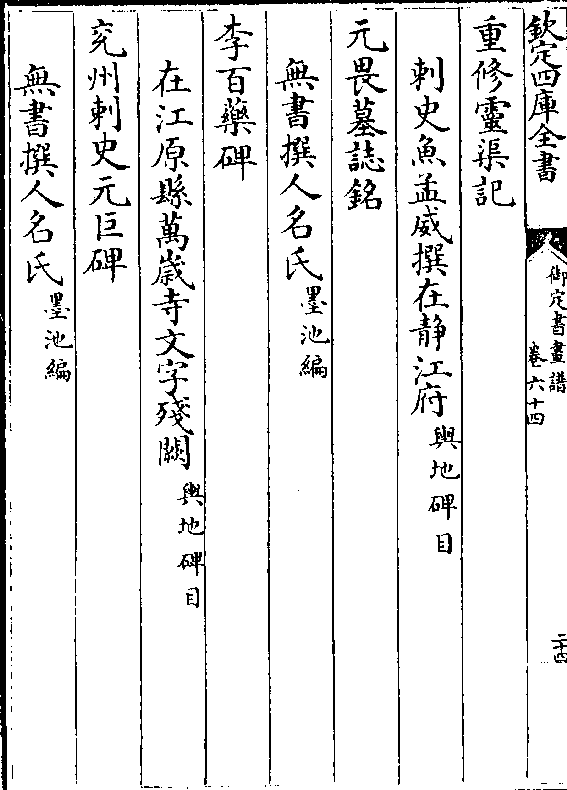 欽定四庫全書
御定書畫譜
卷六十四
二十四
重修靈渠記
刺史魚孟威撰在靜江府輿地碑目
元畏墓誌銘
無書撰人名氏墨池編
李百藥碑
在江原縣萬歲寺文字殘闕輿地碑目
兖州刺史元巨碑
無書撰人名氏墨池編